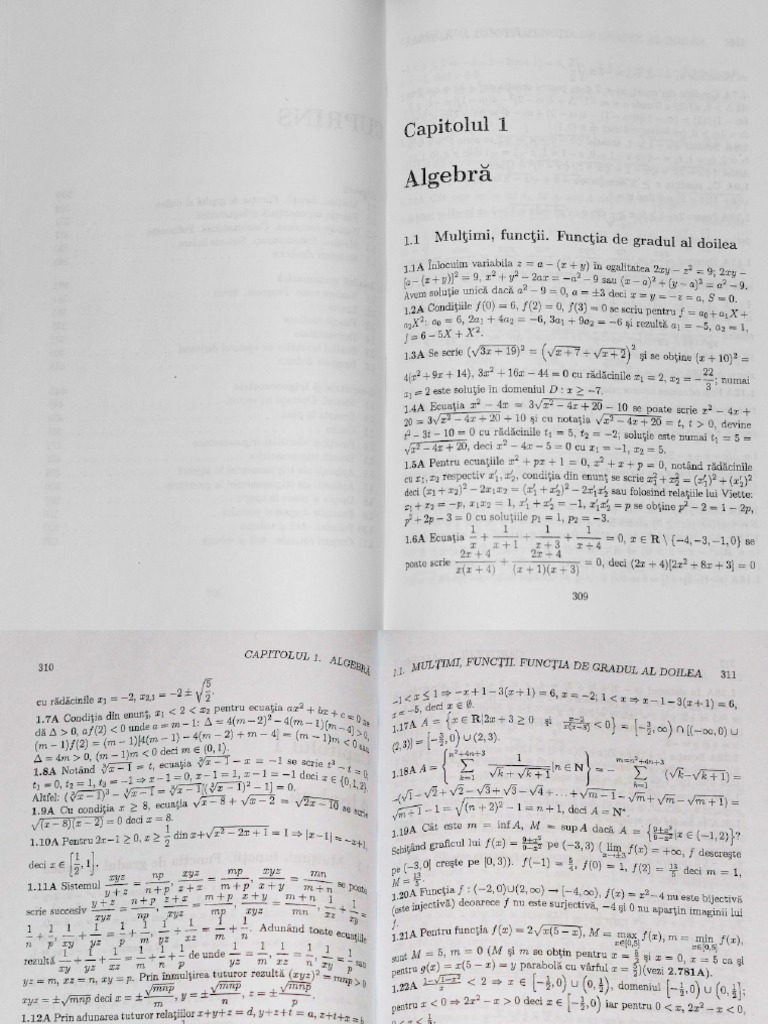 Capitolul 1
Algebră
1.1 Mulţimi, funcţii. Funcţia de gradul al doilea
1.1A Înlocuim variabila z = a − (x + y) în egalitatea 2xy − z² = 9; 2xy −
[a − (x + y)]² = 9, x² + y² − 2ax = −a² − 9 sau (x − a)² + (y − a)² = a² − 9.
Avem soluţie unică dacă a² − 9 = 0, a = ±3 deci x = y = −z = a, S = 0.
1.2A Condiţiile f(0) = 6, f(2) = 0, f(3) = 0 se scriu pentru f = a₀ + a₁X +
a₂X²: a₀ = 6, 2a₁ + 4a₂ = −6, 3a₁ + 9a₂ = −6 şi rezultă a₁ = −5, a₂ = 1,
f = 6 − 5X + X².
1.3A Se scrie (√(3x + 19))² = (√(x + 7) + √(x + 2))² şi se obţine (x + 10)² =
4(x² + 9x + 14), 3x² + 16x − 44 = 0 cu rădăcinile x₁ = 2, x₂ = −22/3; numai
x₁ = 2 este soluţie în domeniul D : x ≥ −7.
1.4A Ecuaţia x² − 4x = 3√(x² − 4x + 20) − 10 se poate scrie x² − 4x +
20 = 3√(x² − 4x + 20) + 10 şi cu notaţia √(x² − 4x + 20) = t, t > 0, devine
t² − 3t − 10 = 0 cu rădăcinile t₁ = 5, t₂ = −2; soluţie este numai t₁ = 5 =
√(x² − 4x + 20), deci x² − 4x − 5 = 0 cu x₁ = −1, x₂ = 5.
1.5A Pentru ecuaţiile x² + px + 1 = 0, x² + x + p = 0, notând rădăcinile
cu x₁, x₂ respectiv x′₁, x′₂, condiţia din enunţ se scrie x₁² + x₂² = (x′₁)² + (x′₂)²
deci (x₁ + x₂)² − 2x₁x₂ = (x′₁ + x′₂)² − 2x′₁x′₂ sau folosind relaţiile lui Viette:
x₁ + x₂ = −p, x₁x₂ = 1, x′₁ + x′₂ = −1, x′₁x′₂ = p se obţine p² − 2 = 1 − 2p,
p² + 2p − 3 = 0 cu soluţiile p₁ = 1, p₂ = −3.
1.6A Ecuaţia 1/x + 1/(x + 1) + 1/(x + 3) + 1/(x + 4) = 0, x ∈ R \ {−4, −3, −1, 0} se
poate scrie (2x + 4)/(x(x + 4)) + (2x + 4)/((x + 1)(x + 3)) = 0, deci (2x + 4)[2x² + 8x + 3] = 0
309
310 CAPITOLUL 1. ALGEBRĂ
cu rădăcinile x₁ = −2, x₂,₃ = −2 ± √(5/2).
1.7A Condiţia din enunţ, x₁ < 2 < x₂ pentru ecuaţia ax² + bx + c = 0 se
dă Δ > 0, af(2) < 0 unde a = m − 1: Δ = 4(m − 2)² − 4(m − 1)(m − 4) > 0,
(m − 1)f(2) = (m − 1)[4(m − 1) − 4(m − 2) + m − 4] = (m − 1)m < 0 sau
Δ = 4m > 0, (m − 1)m < 0 deci m ∈ (0, 1).
1.8A Notând ∛(x − 1) = t, ecuaţia ∛(x − 1) − x = −1 se scrie t³ − t = 0;
t₁ = 0, t₂ = 1, t₃ = −1 ⇒ x − 1 = 0, x − 1 = 1, x − 1 = −1 deci x ∈ {0, 1, 2}.
Altfel: (∛(x − 1))³ − ∛(x − 1) = ∛(x − 1)[(∛(x − 1))² − 1] = 0.
1.9A Cu condiţia x ≥ 8, ecuaţia √(x − 8) + √(x − 2) = √(2x − 10) se scrie
√((x − 8)(x − 2)) = 0 deci x = 8.
1.10A Pentru 2x − 1 ≥ 0, x ≥ 1/2 din x + √(x² − 2x + 1) = 1 ⇒ |x − 1| = −x + 1,
deci x ∈ [1/2, 1].
1.11A Sistemul xyz/(y + z) = np/(n + p), xyz/(z + x) = mp/(m + p), xyz/(x + y) = mn/(m + n) se poate
scrie succesiv (y + z)/xyz = (n + p)/np, (z + x)/xyz = (m + p)/mp, (x + y)/xyz = (m + n)/mn,
Adunând toate ecuaţiile
rezultă 1/xy + 1/yz + 1/xz = 1/m + 1/n + 1/p de unde 1/yz = 1/m, 1/xz = 1/n, 1/xy = 1/p sau
yz = m, xz = n, xy = p. Prin înmulţirea tuturor rezultă (xyz)² = mnp > 0
xyz = ±√mnp deci x = ±√mnp/m, y = ±√mnp/n, z = ±√mnp/p.
1.12A Prin adunarea tuturor relaţiilor x+y+z = d, y+z+t = a, z+t+x = b
1.1. MULŢIMI, FUNCŢII. FUNCŢIA DE GRADUL AL DOILEA 311
−1 < x ≤ 1 ⇒ −x + 1 − 3(x + 1) = 6, x = −2; 1 < x ⇒ x − 1 − 3(x + 1) = 6,
x = −5, deci x ∈ ∅.
1.17A A = {x ∈ R|2x + 3 ≥ 0 şi < 0} = [−3/2, ∞) ∩ [(−∞, 0) ∪
(2, 3)] = [−3/2, 0) ∪ (2, 3).
1.18A A = {∑ 1/(√k + √(k + 1)) |n ∈ N} = − ∑ (√k − √(k + 1)) =
−(√1 − √2 + √2 − √3 + √3 − √4 + ... + √(m − 1) − √m + √m − √(m + 1)) =
√(m + 1) − 1 = √((n + 2)²) − 1 = n + 1, deci A = N*.
1.19A Cât este m = inf A, M = sup A dacă A = {(9+x²)/(9−x²) |x ∈ (−1, 2)}?
Schiţând graficul lui f(x) = (9+x²)/(9−x²) pe (−3, 3) (lim f(x) = +∞, f descreşte
pe (−3, 0] creşte pe [0, 3)). f(−1) = 5/4, f(0) = 1, f(2) = 13/5 deci m = 1,
M = 13/5.
1.20A Funcţia f : (−2, 0)∪(2, ∞) → [−4, ∞), f(x) = x² − 4 nu este bijectivă
(este injectivă) deoarece f nu este surjectivă, −4 şi 0 nu aparţin imaginii lui
f.
1.21A Pentru funcţia f(x) = 2√(x(5 − x)), M = max f(x), m = min f(x),
x∈[0,5] x∈[0,5]
sunt M = 5, m = 0 (M şi m se obţin pentru x = 5/2 şi x = 0, x = 5 ca şi
pentru g(x) = x(5 − x) = y parabolă cu vârful x = 5/2)(vezi 2.781A).
1.22A < 2 ⇒ x ∈ [−1/2, 0) ∪ (0, 1/2], domeniul [−1/2, 0) ∪ (0, 1/2];
pentru x < 0 ⇒ 2x² − x > 0 deci x ∈ [−1/2, 0) iar pentru 0 < x, 2x² − x < 0,